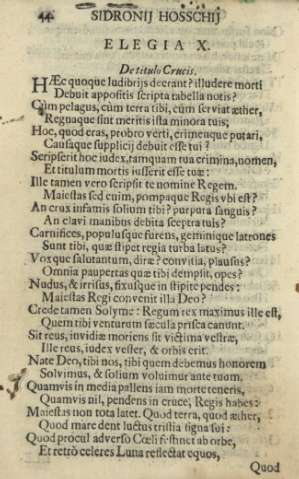 44 SIDRONIJ HOSSCHIJ
ELEGIA X.
De titulo Crucis.
HÆc quoque ludibrijs deerant? illudere morti
Debuit appositis scripta tabella notis?
Cùm pelagus, cùm terra tibi, cùm serviat æther,
Regnaque sint meritis ista minora tuis;
Hoc, quod eras, probro verti, crimenque putari,
Causaque supplicij debuit esse tui?
Scripserit hoc iudex, tamquam tua crimina, nomen,
Et titulum mortis iusserit esse tuæ:
Ille tamen vero scripsit te nomine Regem.
Maiestas sed enim, pompaque Regis vbi est?
An crux infamis solium tibi? purpura sanguis?
An clavi manibus debita sceptra tuis?
Carnifices, populusque furens, geminique latrones
Sunt tibi, quæ stipet regia turba latus?
Vox que salutantum, diræ? convitia, plausus?
Omnia paupertas quæ tibi dempsit, opes?
Nudus, & irrisus, fixusque in stipite pendes:
Maiestas Regi convenit illa Deo?
Crede tamen Solyme: Regum rex maximus ille est,
Quem tibi venturum sæcula prisca canunt.
Sit reus, invidiæ moriens sit victima vestræ,
Ille reus, iudex vester, & orbis erit.
Nate Deo, tibi nos, tibi quem debemus honorem
Solvimus, & solium voluimur ante tuum.
Quamvis in media pallens iam morte teneris,
Quamvis nil, pendens in cruce, Regis habes:
Maiestas non tota latet. Quod terra, quod æther,
Quod mare dent luctus tristia signa sui:
Quod procul adverso Cœli festinet ab orbe,
Et retrò celeres Luna reflectat equos,
Quod